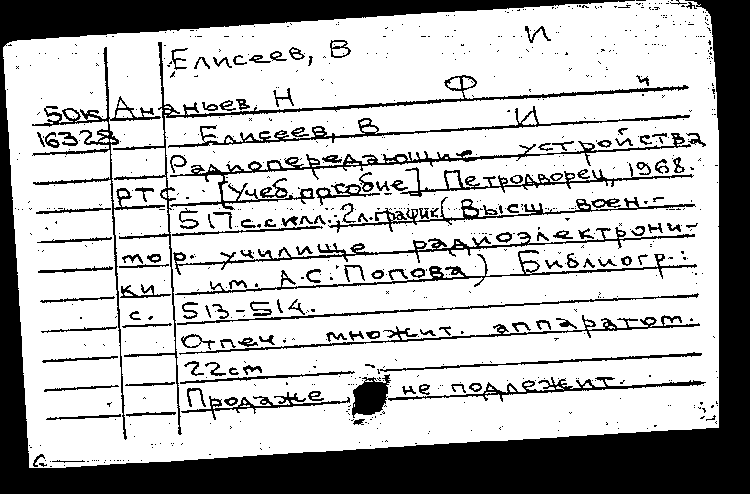 Елисеев, В И
50к Ананьев, Н Ф и
16328 Елисеев, В И
Радиопередающие устройства
РТС. [Учеб. пособие]. Петродворец, 1968.
517 с. с илл.; 2 л. график (Высш. воен.-
мор. училище радиоэлектрони-
ки им. А.С. Попова) Библиогр.:
с. 513-514.
Отпеч. множит. аппаратом.
22 cm
Продаже не подлежит.